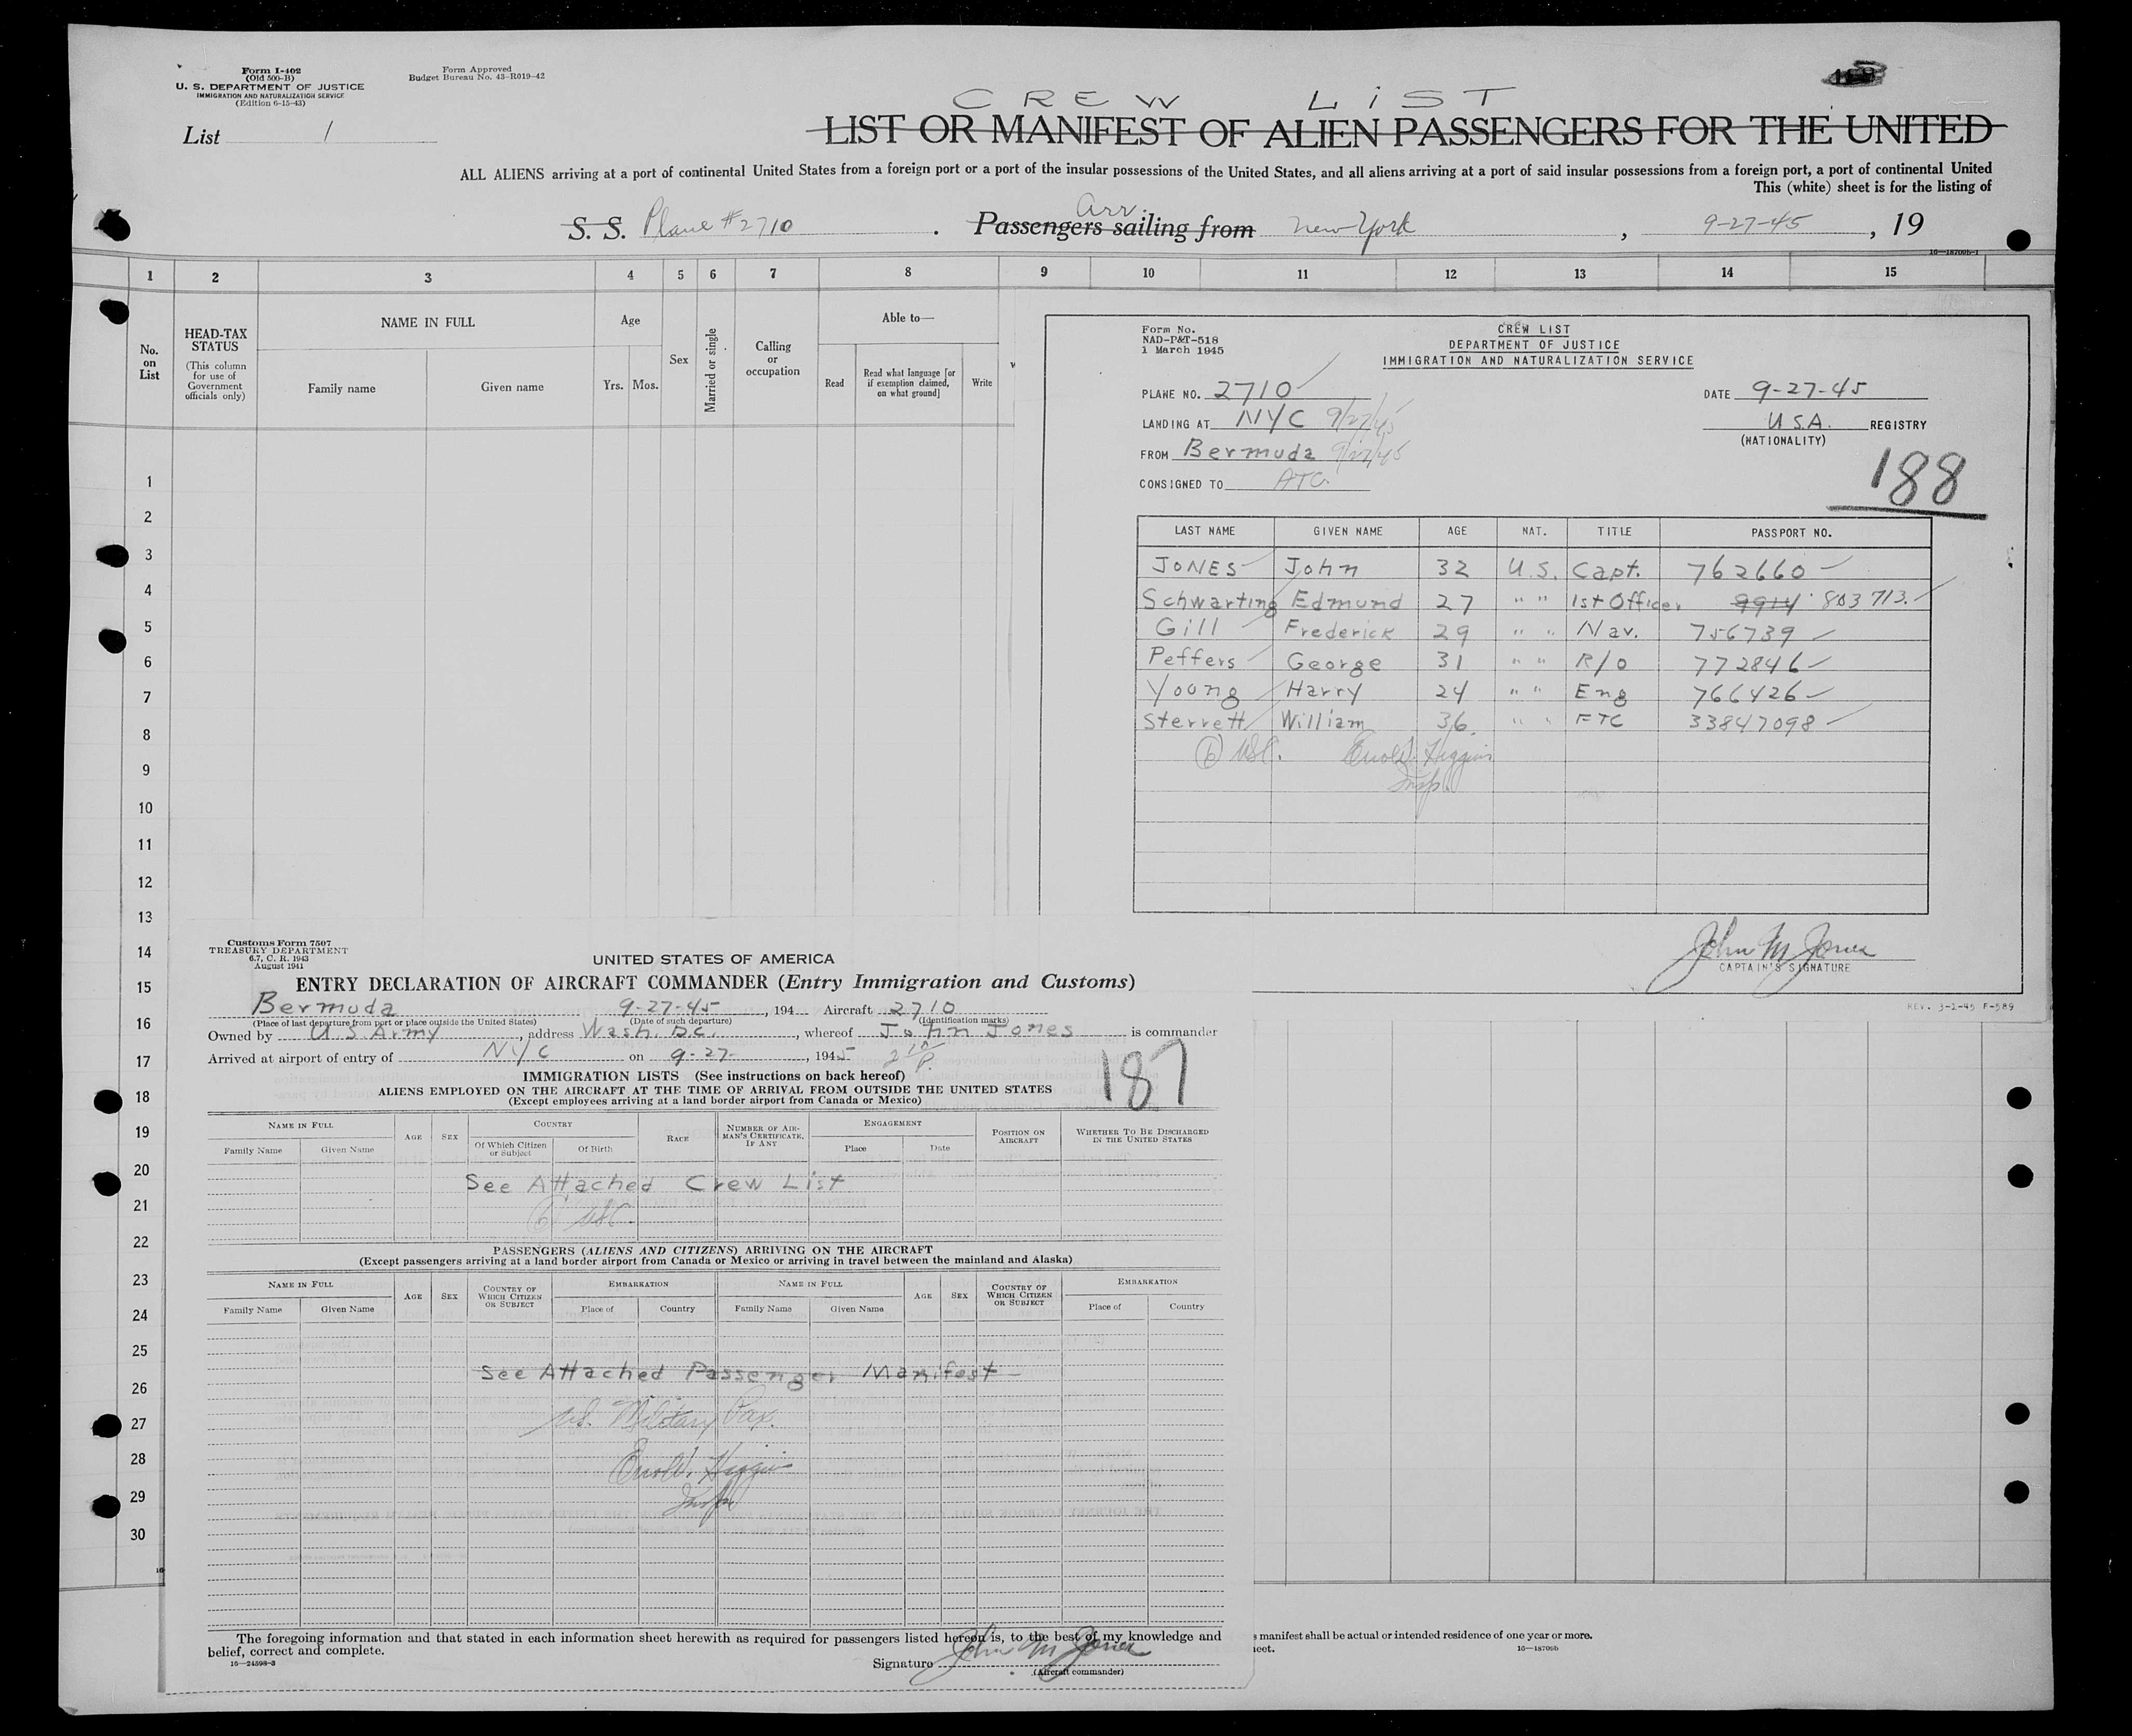 Form I-402
(Old 500-B)
U. S. DEPARTMENT OF JUSTICE
IMMIGRATION AND NATURALIZATION SERVICE
(Edition 6-15-43)
Form Approved
Budget Bureau No. 43-R019-42
List 1
CREW LIST
LIST OR MANIFEST OF ALIEN PASSENGERS FOR THE UNITED
ALL ALIENS arriving at a port of continental United States from a foreign port or a port of the insular possessions of the United States, and all aliens arriving at a port of said insular possessions from a foreign port, a port of continental United
This (white) sheet is for the listing of
Arr.
S. S. Plane #2710 . Passengers sailing from New York , 9-27-45 , 19
16—18709b-1
1 2 3 4 5 6 7 8 9 10 11 12 13 14 15
No. on List
HEAD-TAX STATUS
(This column for use of Government officials only)
NAME IN FULL
Family name Given name
Age
Yrs. Mos.
Sex
Married or single
Calling or occupation
Able to—
Read
Read what language [or if exemption claimed, on what ground]
Write
1
2
3
4
5
6
7
8
9
10
11
12
13
14
15
16
17
18
19
20
21
22
23
24
25
26
27
28
29
30
Form No.
NAD-P&T-518
1 March 1945
CREW LIST
DEPARTMENT OF JUSTICE
IMMIGRATION AND NATURALIZATION SERVICE
PLANE NO. 2710
DATE 9-27-45
LANDING AT NYC 9/27/45
U.S.A. REGISTRY
(NATIONALITY)
FROM Bermuda 9/27/45
CONSIGNED TO ATC
188
LAST NAME GIVEN NAME AGE NAT. TITLE PASSPORT NO.
JONES John 32 U.S. Capt. 762660
Schwarting Edmund 27 " " 1st Officer 9914 803713.
Gill Frederick 29 " " Nav. 756739
Peffers George 31 " " R/O 772846
Young Harry 24 " " Eng 766426
Sterrett William 36 " " FTC 33847098
(6) USC. Higgins
Insp.
John M Jones
CAPTAIN'S SIGNATURE
REV. 3-2-45 F-589
Customs Form 7507
TREASURY DEPARTMENT
6.7, C. R. 1943
August 1941
UNITED STATES OF AMERICA
ENTRY DECLARATION OF AIRCRAFT COMMANDER (Entry Immigration and Customs)
Bermuda 9-27-45 , 194 Aircraft 2710
(Place of last departure from port or place outside the United States) (Date of such departure) (Identification marks)
Owned by U S Army , address Wash. D.C. , whereof John Jones is commander
Arrived at airport of entry of NYC on 9-27- , 1945
187
IMMIGRATION LISTS (See instructions on back hereof)
ALIENS EMPLOYED ON THE AIRCRAFT AT THE TIME OF ARRIVAL FROM OUTSIDE THE UNITED STATES
(Except employees arriving at a land border airport from Canada or Mexico)
NAME IN FULL
Family Name Given Name
AGE SEX
COUNTRY
Of Which Citizen or Subject Of Birth
RACE
NUMBER OF AIRMAN'S CERTIFICATE, IF ANY
ENGAGEMENT
Place Date
POSITION ON AIRCRAFT
WHETHER TO BE DISCHARGED IN THE UNITED STATES
See Attached Crew List
(6) USC
PASSENGERS (ALIENS AND CITIZENS) ARRIVING ON THE AIRCRAFT
(Except passengers arriving at a land border airport from Canada or Mexico or arriving in travel between the mainland and Alaska)
NAME IN FULL AGE SEX COUNTRY OF WHICH CITIZEN OR SUBJECT EMBARKATION NAME IN FULL AGE SEX COUNTRY OF WHICH CITIZEN OR SUBJECT EMBARKATION
Family Name Given Name Place of Country Family Name Given Name Place of Country
See Attached Passenger Manifest
U.S. Military Pax.
Higgins
Insp
The foregoing information and that stated in each information sheet herewith as required for passengers listed hereon is, to the best of my knowledge and
belief, correct and complete.
16—24598-3
Signature John M Jones
(Aircraft commander)
s manifest shall be actual or intended residence of one year or more.
16—18709b